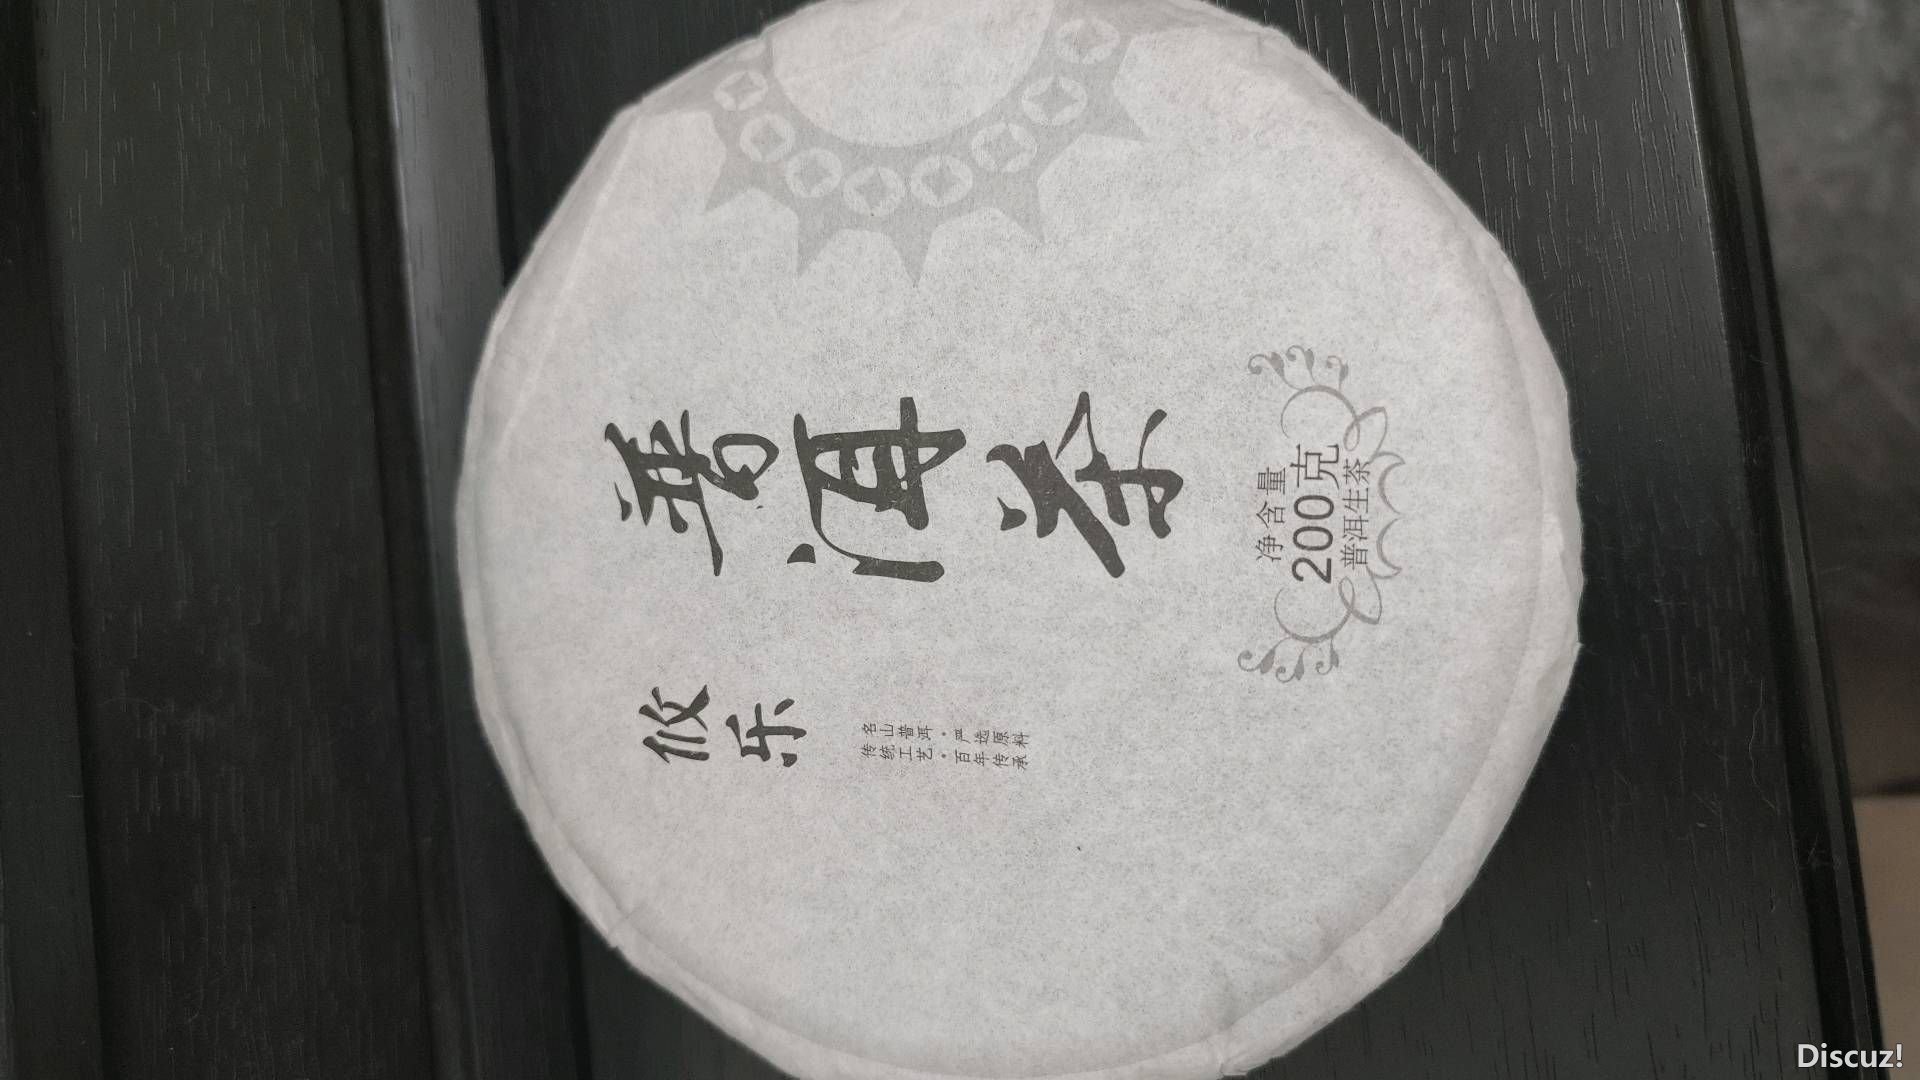 普洱茶
攸乐
名山普洱·严选原料
传统工艺·百年传承
净含量
200克
普洱生茶
Discuz!